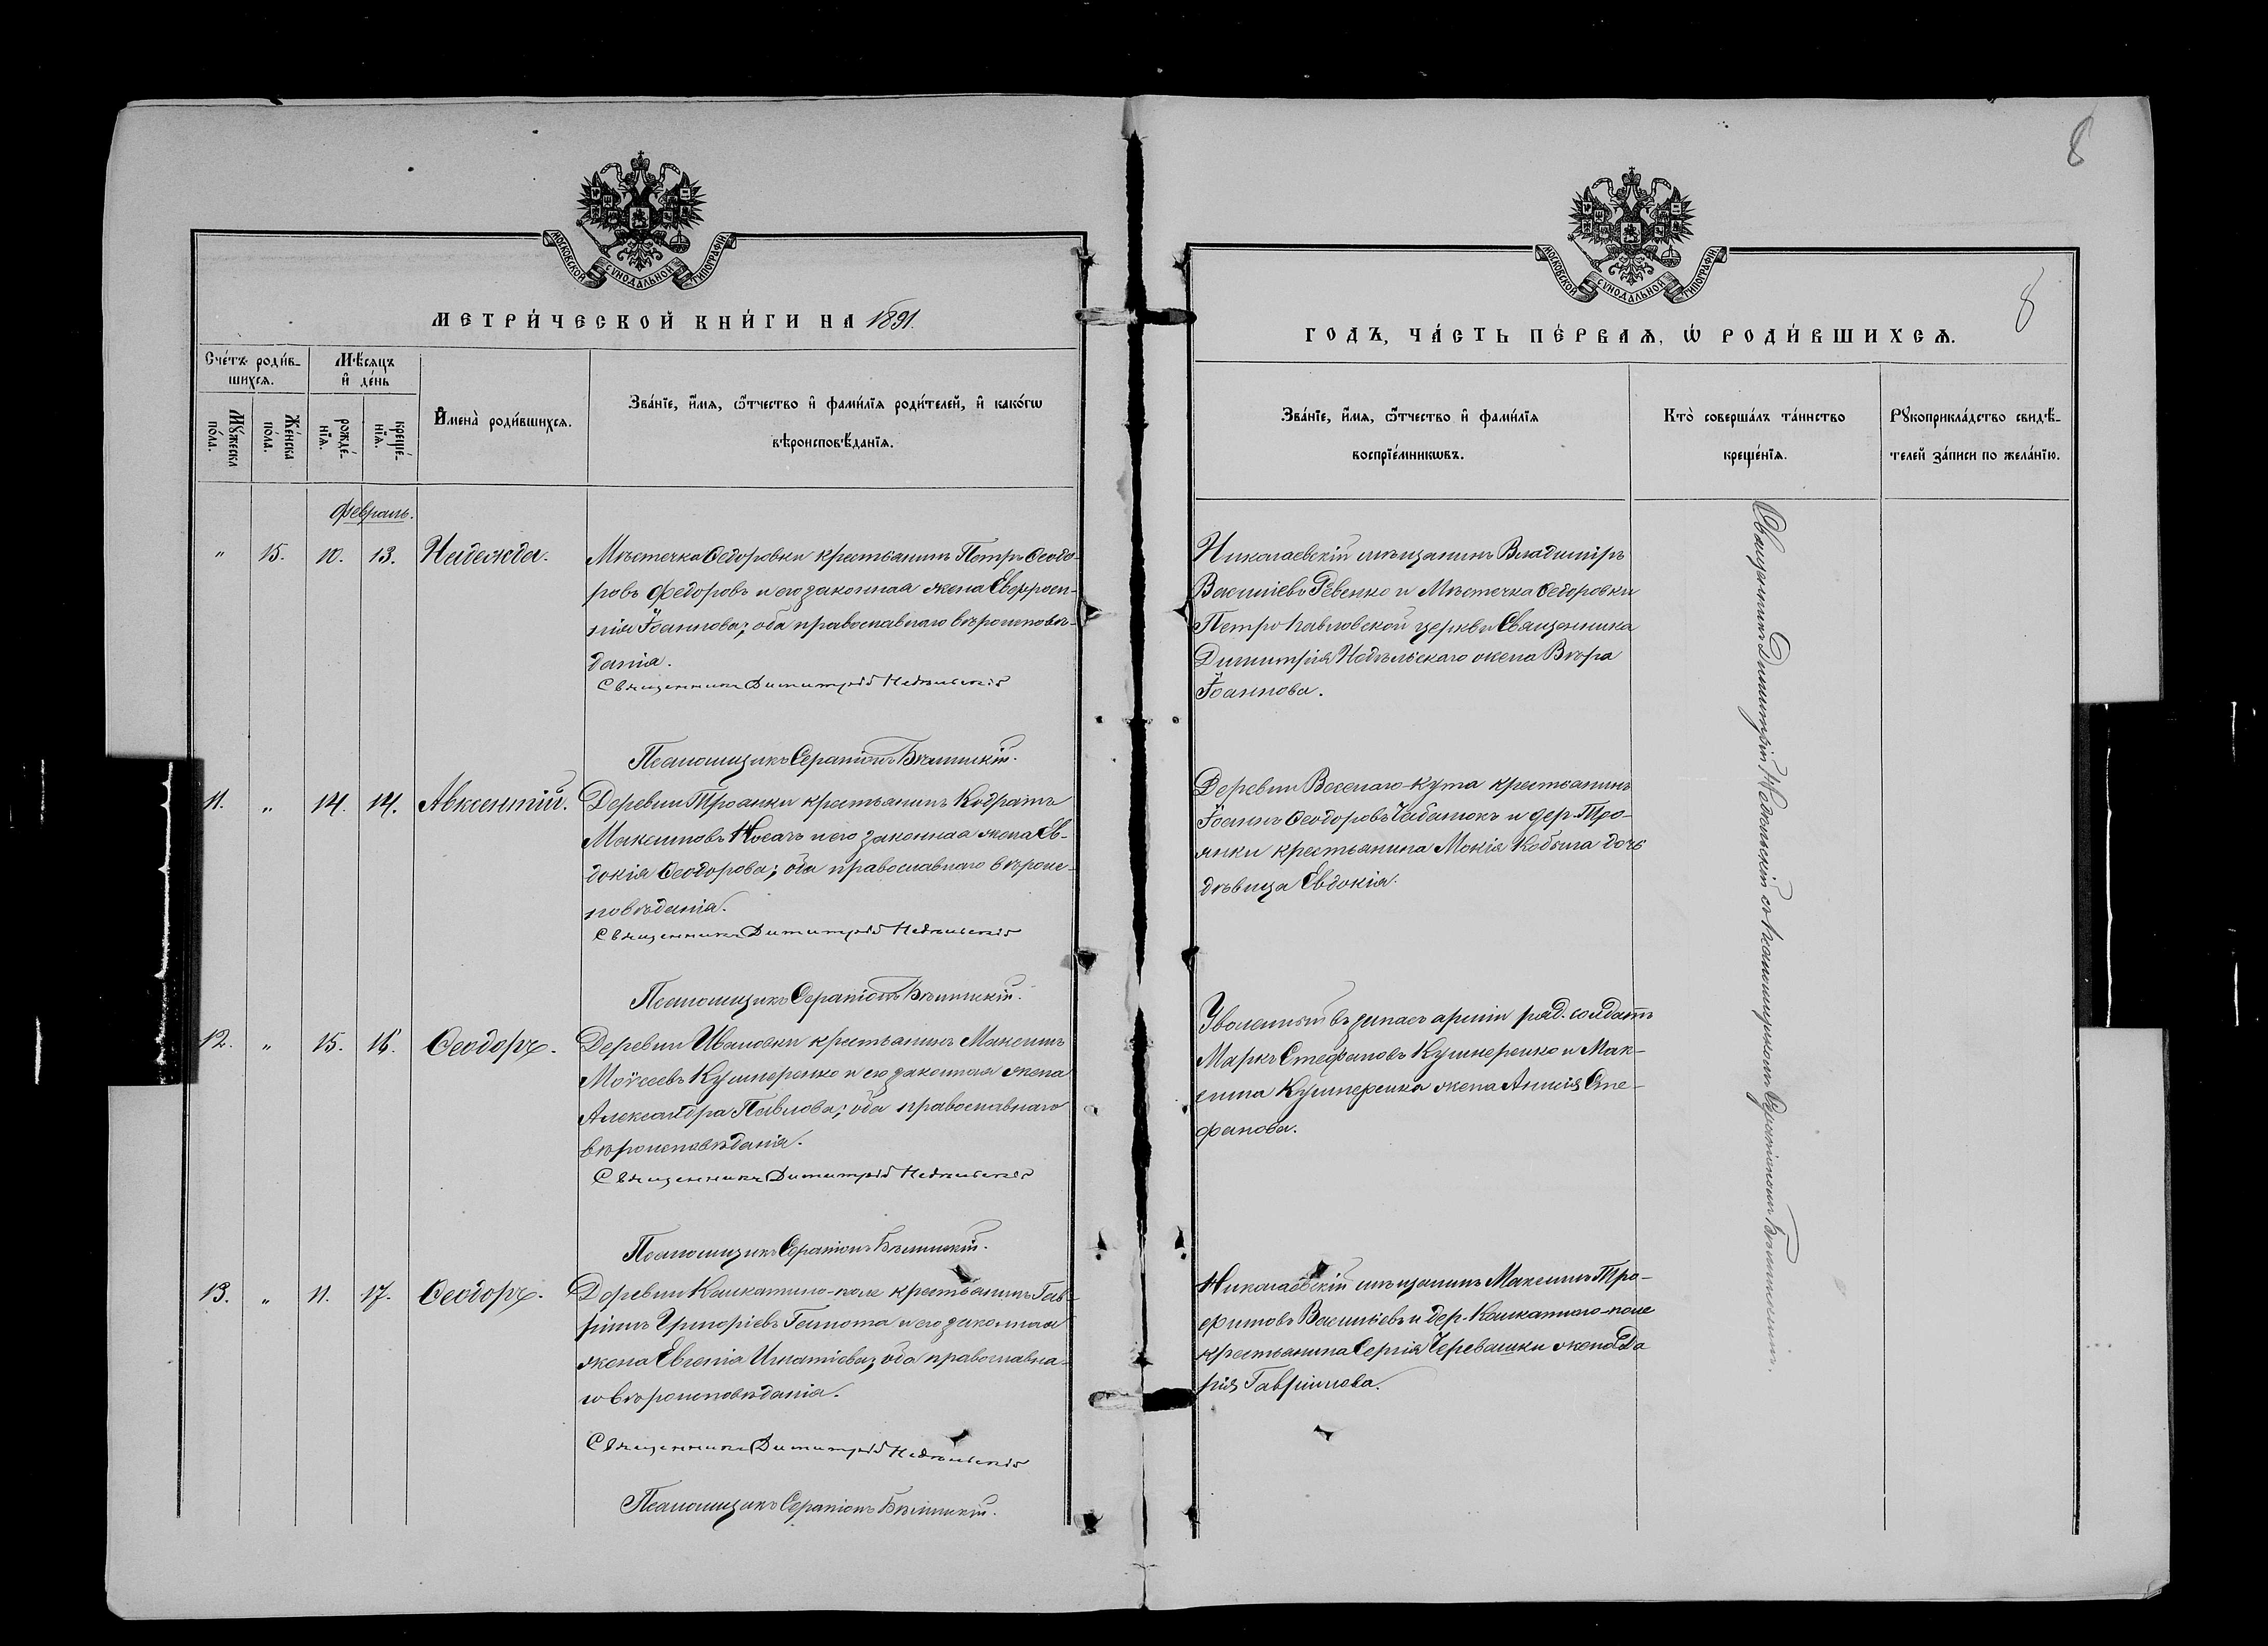 8
МОСКОВСКОЙ СѴНОДАЛЬНОЙ ТИПОГРАФІИ
МЕТРИ́ЧЕСКОЙ КНИ́ГИ НА 1891.
Сче́тъ роди́в-
шихсѧ.
Мѣ́сѧцъ
и҆ де́нь
Мꙋ́жеска
по́ла.
Же́нска
по́ла.
рожде́-
нїѧ.
креще́-
нїѧ.
И҆мена̀ роди́вшихсѧ.
Зва́нїе, и҆́мѧ, ѻ҆́тчество и҆ фами́лїѧ роди́телей, и҆ како́гѡ
вѣроисповѣ́данїѧ.
Февраль.
" 15. 10. 13. Надежда.
Мѣстечка Ѳедоровки крестьянинъ Петръ Ѳеодо-
ровъ Федоровъ и его законная жена Евфросн-
нія Іоаннова; оба православнаго вѣроисповѣ-
данія.
Священникъ Димитрій Недѣльскій
Псаломщикъ Серапіонъ Бѣлинскій.
11. " 14. 14. Авксентій.
Деревни Троянки крестьянинъ Кодратъ
Максимовъ Носачъ и его законная жена Ев-
докія Ѳеодорова; оба православнаго вѣроис-
повѣданія.
Священникъ Димитрій Недѣльскій
Псаломщикъ Серапіонъ Бѣлинскій.
12. " 15. 16. Ѳеодоръ.
Деревни Ивановки крестьянинъ Максимъ
Моѵсеевъ Кушнеренко и его законная жена
Александра Павлова; оба православнаго
вѣроисповѣданія.
Священникъ Димитрій Недѣльскій
Псаломщикъ Серапіонъ Бѣлинскій.
13. " 11. 17. Ѳеодоръ.
Деревни поле крестьянинъ Гав-
ріилъ Григоріевъ и его законная
жена Евгенія Игнатіева; оба православна-
го вѣроисповѣданія.
Священникъ Димитрій Недѣльскій
Псаломщикъ Серапіонъ Бѣлинскій.
8
МОСКОВСКОЙ СѴНОДАЛЬНОЙ ТИПОГРАФІИ
ГОДЪ, ЧА́СТЬ ПЕ́РВАѦ, Ѡ҆ РОДИ́ВШИХСѦ.
Зва́нїе, и҆́мѧ, ѻ҆́тчество и҆ фами́лїѧ
воспрїе́мникѡвъ.
Кто̀ соверша́лъ та́инство
креще́нїѧ.
Рꙋкоприкла́дство свидѣ́-
телей за́писи по жела́нїю.
Николаевскій мѣщанинъ Владиміръ
Васильевъ Ревенко и Мѣстечка Ѳедоровки
Петро Павловской церкви Священника
Димитрія Недѣльскаго жена Вѣра
Іоаннова.
Деревни Веселаго-кута крестьянинъ
Іоаннъ Ѳеодоровъ Чабанюкъ и дер. Тро-
янки крестьянина Мокія Кобыла дочь
дѣвица Евдокія.
Уволенный въ запасъ арміи ряд. солдатъ
Маркъ Стефановъ Кушнеренко и Мак-
сима Кушнеренка жена Анисія Сте-
фанова.
Николаевскій мѣщанинъ Максимъ Тро-
фимовъ Васильевъ и дер. поле
крестьянина Сергія Черевашки жена Да
рія Гавриилова.
Священникъ Димитрій Недѣльскій съ псаломщикомъ Серапіономъ Бѣлинскимъ.